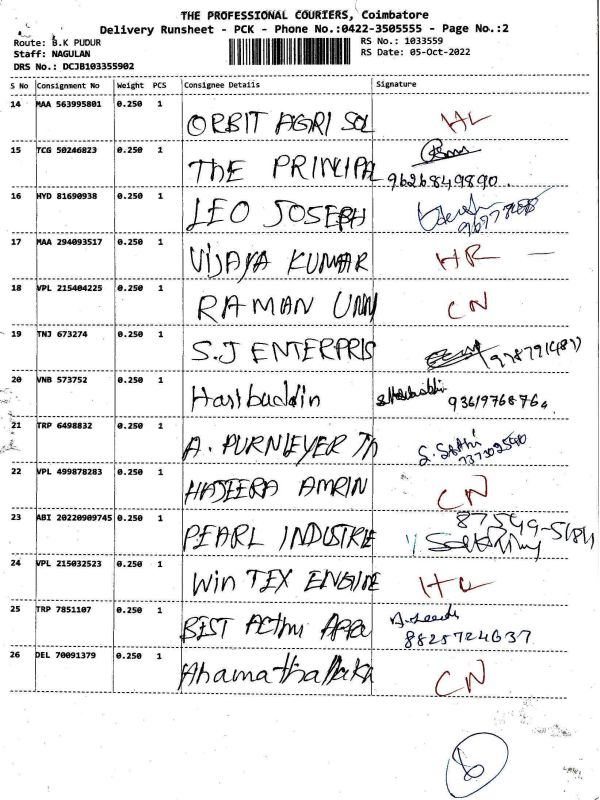 THE PROFESSIONAL COURIERS, Coimbatore
Delivery Runsheet - PCK - Phone No.:0422-3505555 - Page No.:2
Route: B.K PUDUR
RS No.: 1033559
Staff: NAGULAN
RS Date: 05-Oct-2022
DRS No.: DCJB103355902
S No Consignment No Weight PCS Consignee Details Signature
14 MAA 563995801 0.250 1
ORBIT AGRI SOL HL
15 TCG 50246823 0.250 1
THE PRINCIPA 9626849890.
16 HYD 81690938 0.250 1
LEO JOSEPH
17 MAA 294093517 0.250 1
VIJAYA KUMAR HR —
18 VPL 215404225 0.250 1
RAMAN UNN CN
19 TNJ 673274 0.250 1
S.J ENTERPRIS
20 VNB 573752 0.250 1
Hasibuddin
21 TRP 6498832 0.250 1
A. PURNIEYER TM S. Sathi
22 VPL 499878283 0.250 1
HAJEERA AMRIN CN
23 ABI 20220909745 0.250 1
PEARL INDUSTRIE
24 VPL 215032523 0.250 1
Win TEX ENGINE HL
25 TRP 7851107 0.250 1
BEST ACTHU APPO
8825724637
26 DEL 70091379 0.250 1
CN
8